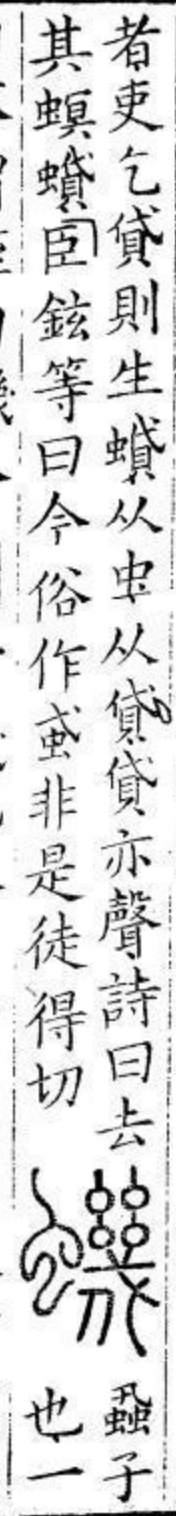 者吏乞貸則生蟘从虫从貸貸亦聲詩曰去
其螟蟘臣鉉等曰今俗作非是徒得切
蟣
蝨子
也一